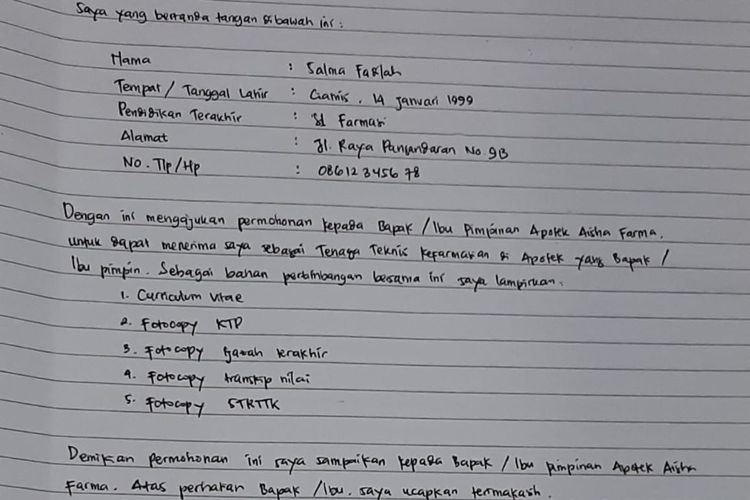 Saya yang bertanda tangan dibawah ini :
Nama : Salma Fadlah
Tempat / Tanggal Lahir : Ciamis, 14 Januari 1999
Pendidikan Terakhir : S1 Farmasi
Alamat : Jl. Raya Pangandaran No. 9B
No. Tlp / Hp : 086123456 78
Dengan ini mengajukan permohonan kepada Bapak / Ibu Pimpinan Apotek Aisha Farma,
untuk dapat menerima saya sebagai Tenaga Teknis Kefarmasian di Apotek yang Bapak /
Ibu pimpin. Sebagai bahan pertimbangan bersama ini saya lampirkan.
1. Curriculum Vitae
2. Fotocopy KTP
3. Fotocopy Ijazah terakhir
4. Fotocopy transkip nilai
5. Fotocopy STRTTK
Demikian permohonan ini saya sampaikan kepada Bapak / Ibu pimpinan Apotek Aisha
Farma. Atas perhatian Bapak / Ibu, saya ucapkan terimakasih.